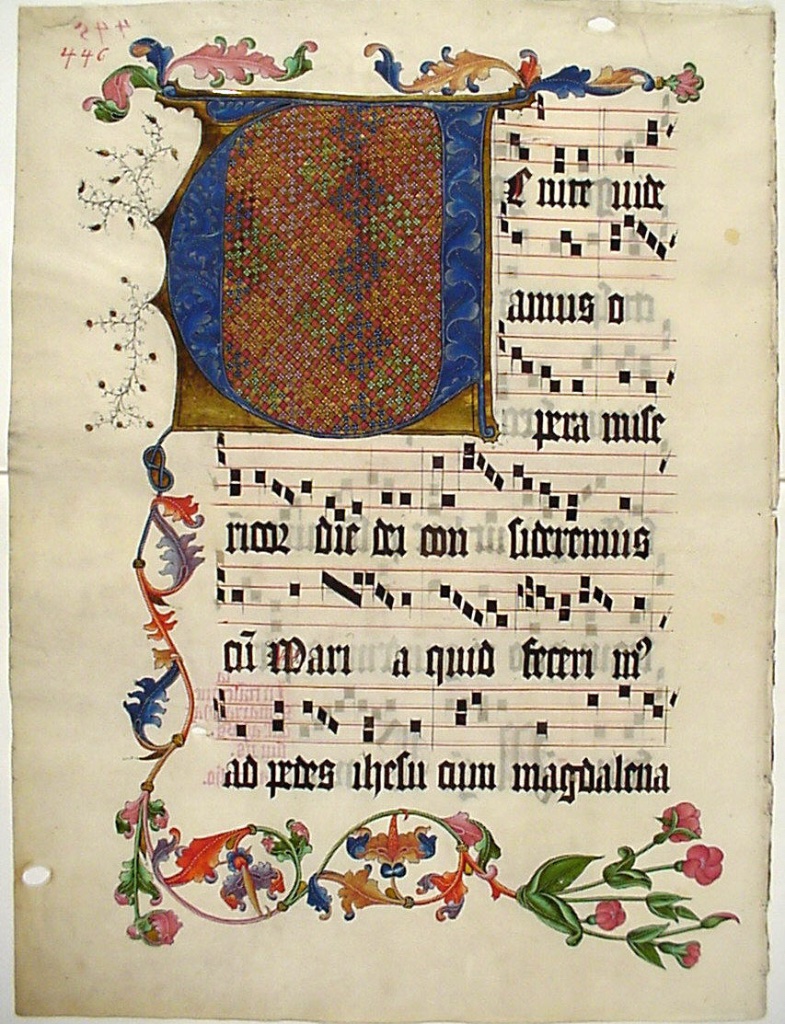 446
UE nite uide
amus o
pera mise
ricor die dei con sideremus
cū Mari a quid feceri mꝰ
ad pedes ihesu cum magdalena